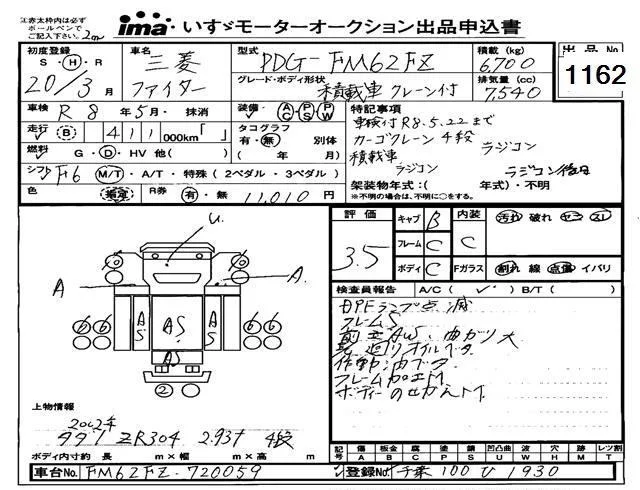 工赤太枠内は必ず
ボールペンで
ご記入下さい。
ima いすゞモーターオークション出品申込書
初度登録 S・H・R 20/3月
車名 三菱 ファイター
型式 PDG-FM62FZ
グレード・ボディ形状 積載車 クレーン付
積載(kg) 6700
排気量(cc) 7,540
出品No
1162
車検 R8年5月・抹消
装備・ AC PS PW
特記事項
走行 B 411 000km「 」
タコグラフ 有・無 別体 ( 年 月)
車検付R8.5.22まで
カーゴクレーン4段 ラジコン
積載車 ラジコン
燃料 G・D・HV 他( )
シフト F6 M/T・A/T・特殊(2ペダル・3ペダル)
架装物年式:( 年式)・不明
※不明の場合は、不明に○をする。
色 指定 R券 有・無 11,010円
評価 3.5
キャブ B 内装 C 汚れ 破れ ヤコ スレ
フレーム C
ボディ C Fガラス 割れ 線 点傷 イバリ
検査員報告 A/C( ✓ )・B/T( )
DPFランプ点滅
フレームS
作動:
フレーム加工M
ボディーのせかえM
U A A
6 6 AS AS AS 6 6
AS
2
上物情報
2002年
タダノ ZR304 2.93t 4段
ボディ内寸約 長 m×幅 m×高 m
記号 傷A 板金B 腐C 歪P 塗S 錆U 凹凸曲W 波H 穴M レツ割T
車台No. FM62FZ-720059
登録No. 千葉 100 ひ 1930